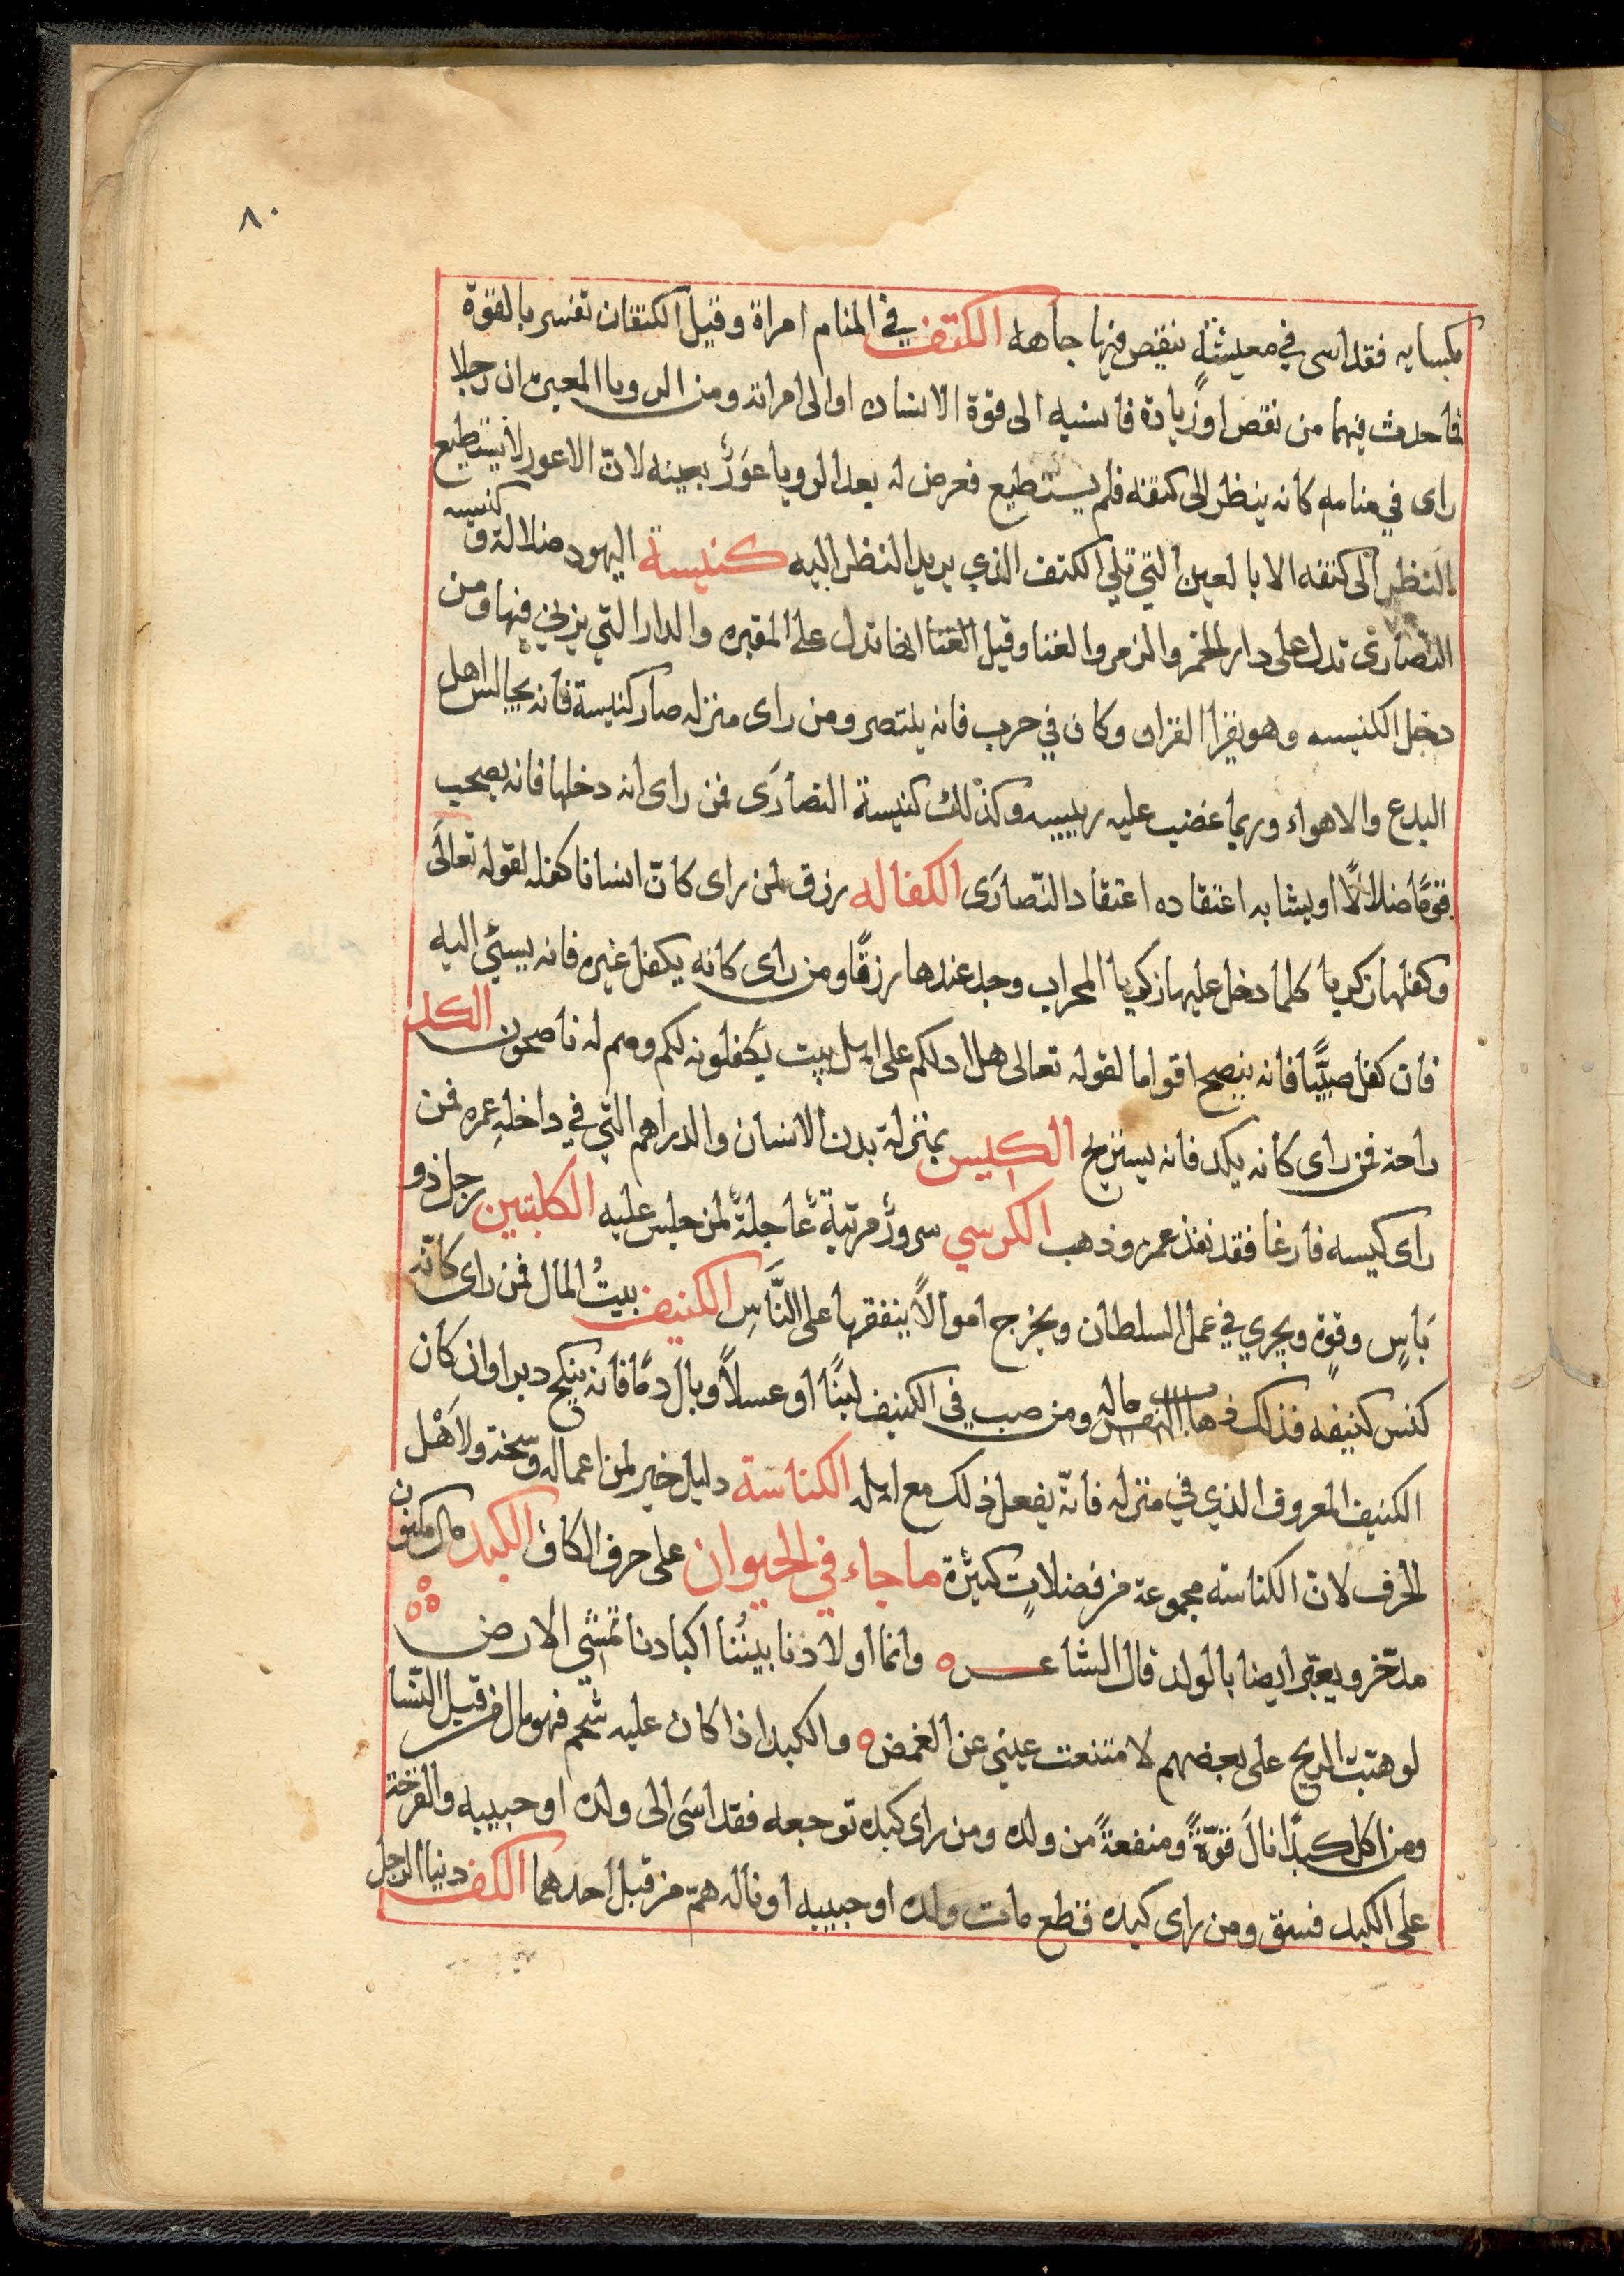 ٨٠
بكسايه فقد اسى في معيشة ينقص فيها جاهه الكتف في المنام امراة وقيل الكتفان تفسر بالقوة
فاحدث فيهما من نقص او زيادة فانسبه الى قوة الانسان او الى امراته ومن الرويا المعبره ان رجلا
راى في منامه كانه ينظر الى كتفه فلم يستطيع فعرض له بعد الرويا عَوَرٌ بعينه لانّ الاعور لا يستطيع
النظر الى كتفه الا بالعين التي تلي الكتف الذي يريد النظر اليه كنيسة اليهود ضلالة و كنيسه
النصارى تدل على دار الخمر والزمر والغنا وقيل الغنا انها تدل على المقبره والدار التي يزنى فيها ومن
دخل الكنيسه وهو يقرا القران وكان في حرب فانه ينتصر ومن راى منزله صار كنيسة فانه يجالس اهل
البدع والاهواء وربما غضب عليه ربيبه وكذلك كنيسة النصارَى فمن راى انه دخلها فانه يصحب
قومًا ضلالًا او يشابه اعتقاده اعتقاد النّصارَى الكفاله رزق لمن راى كانّ انسانا كفله لقوله تعالَى
وكفلها زكريا كلما دخل عليها زكريا المحراب وجد عندها رزقًا ومن راى كانه يكفل غيره فانه يسئي اليه
فان كفل صبيًّا فانه ينصح اقواما لقوله تعالى هل ادلكم على اهل بيت يكفلونه لكم وهم له ناصحون الكد
راحة فمن راى كانه يكد فانه يستريح الكيس بمنزلة بدن الانسان والدراهم التي في داخلهِ عمره فمن
راى كيسه فارغا فقد نفذ عمره وذهب الكرسي سرورٌ مرتبةٌ عاجلةٌ لمن جلس عليه الكلبتين رجل ذو
بَاسٍ وقوةٍ ويجري في عمل السلطان ويخرج اموالاً ينفقها على النَّاسِ الكنيف بيتُ المال فمن راى كانّه
كنس كنيفه فذلك ماله ومن صب في الكنيف لبنًا او عسلاً وبال دمًا فانه ينكح دبرا وان كان
الكنيف المعروف الذي في منزله فانّه يفعل ذلك مع اهله الكناسة دليل خير لمن اعماله وسخة ولاَهْل
الحرف لانّ الكناسة مجموعة من فضلاتٍ كثيرة ما جاء في الحيوان على حرف الكاف الكبد مال مكنون
مدّخر ويعبّر ايضا بالولد قال الشاعـــر ه وانما اولادنا بيننُا اكبادنا تمشي الارض
لو هبّت الريح على بعضهم لامتنعت عيني عن الغمض ه والكبد اذا كان عليه شحم فهو مال من قبل النّسا
ومن اكل كبدًا نالَ قوّةً ومنفعةً من ولده ومن راى كبده توجعه فقد اسَى الى ولده او حبيبه والقرحة
على الكبد فسق ومن راى كبده قطع مات ولده او حبيبه او ناله همّ من قبل احدهما الكف دنيا الرجل